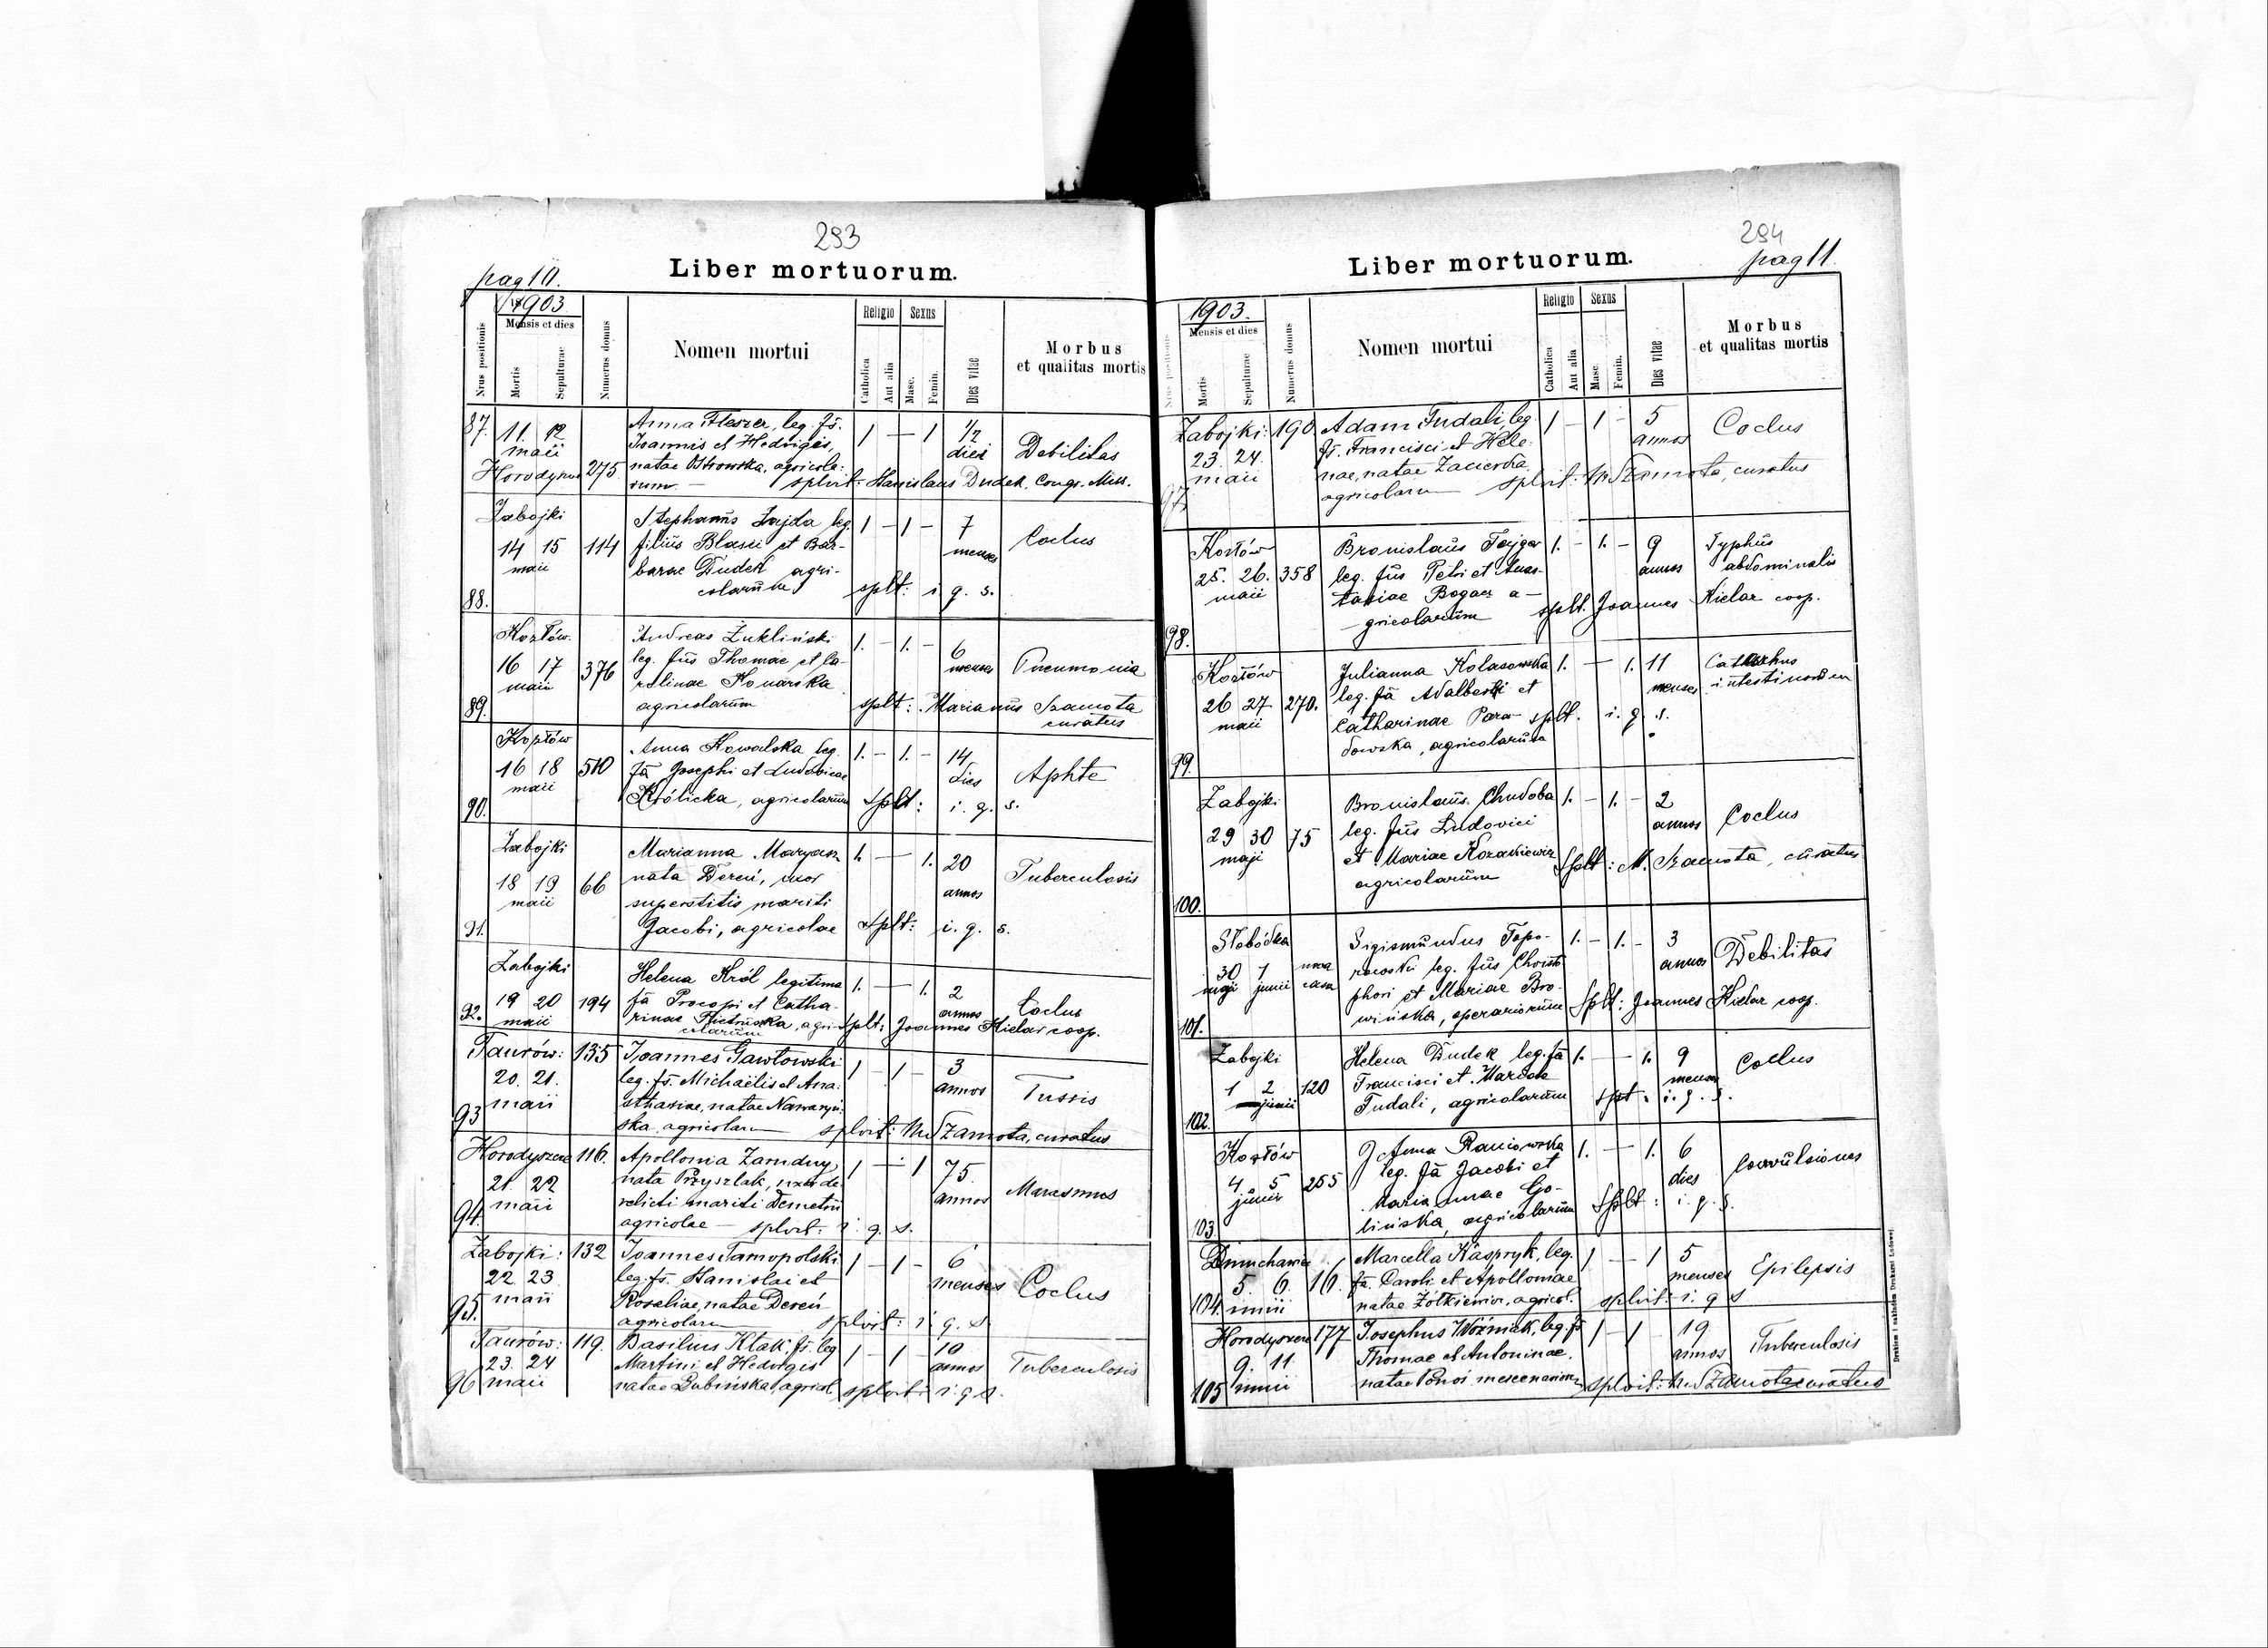 293
pag 10.
Liber mortuorum.
Nrus positionis
1903
Mensis et dies
Mortis
Sepulturae
Numerus domus
Nomen mortui
Religio
Catholica
Aut alia
Sexus
Masc.
Femin.
Dies vitae
Morbus
et qualitas mortis
87. 11. 12 Anna Fleszer, leg. fs. 1 — 1 1/2
maii Joannis et Hedvigis, diei Debilitas
275. natae Ostrowska, agricola-
rum — splvit: Stanislaus Dudek, Congr. Miss.
Zabojki Stephanus Zajda leg. 1 — 1 — 7
14 15 114 filius Blasii et Bar- menses Coclus
maii barae Dudek agri-
88. colarum splt: i q. s.
Kozłów Andreas Żukliński 1. — 1. — 6
16 17 376 leg. fus Thomae et Ca- menses Pneumonia
maii rolinae Konarska
89. agricolarum splt: Marianus Szamota
curatus
Kozłów Anna Kowalska leg. 1. — 1. — 14
16 18 510 fa Josephi et Ludovicae dies Aphte
maii
90. Królicka, agricolarum Splt: i. q. s.
Zabojki Marianna Maryasz 1. — 1. 20
18 19 66 nata Dereń, uxor annos Tuberculosis
maii superstitis mariti
91. Jacobi, agricolae Splt: i. q. s.
Zabojki Helena Król legitima 1. — 1. 2
19 20 194 fa Procopi et Catha- annos Coclus
92. maii rinae agri- Splt: Joannes Kielar coop.
colarum
Taurów: 135 Joannes Gawłowski 1 — 1 — 3
20. 21. leg. fs. Michaëlis et Ana- annos Tussis
maii sthasiae, natae
93 ska, agricolarum splvit: M. Szamota, curatus
116. Apollonia 1 — 1 75
21. 22 nata Przyszlak, uxor de- annos Marasmus
maii relicti mariti Demetrii
94. agricolae — splvit: i. q. s.
Zabojki: 132 Joannes Tarnopolski 1 — 1 — 6
22 23. leg. fs. Stanislai et menses Coclus
maii Rosaliae, natae Dereń
95. agricolarum splvit: i q. s
Taurów: 119. Basilius Ktak, fs. leg 1 — 1 — 10
23. 24 Martini et Hedvigis annos Tuberculosis
96 maii natae Dubińska, agricol. splvit: i. q. s.
294
pag 11.
Liber mortuorum.
Nrus positionis
1903.
Mensis et dies
Mortis
Sepulturae
Numerus domus
Nomen mortui
Religio
Catholica
Aut alia
Sexus
Masc.
Femin.
Dies vitae
Morbus
et qualitas mortis
Zabojki: 190 Adam Tudali, leg. 1 — 1 — 5
23. 24. fs. Francisci et Hele- annos Coclus
maii nae, natae
97. agricolarum splvit: M. Szamota, curatus
Kozłów Bronislaus 1. — 1. — 9 Typhus
25. 26. 358 leg. fus Petri et Anas- annos abdominalis
maii tasiae Bogacz a-
98. gricolarum splt. Joannes Kielar coop.
Kozłów Julianna Kolasowska 1. — 1. 11
26 27 270. leg. fa Adalberti et menses intestinorum
maii Catharinae Para- splt. i. q. s.
99. dowska, agricolarum
Zabojki Bronislaus Chudoba 1. — 1. — 2
29 30 75 leg. fus Ludovici annos Coclus
maji et Mariae Kozakiewicz Splt: M. Szamota, curatus
100. agricolarum
Słobódka Sigismundus Topo- 1. — 1. — 3
30 1 rowski leg. fus Christo- annos Debilitas
maji junii casa phori et Mariae Bro-
101. wińska, operariorum Splt: Joannes Kielar coop.
Zabojki Helena Dudek leg. fa 1. — 1. 9
1 2 120 Francisci et menses Coclus
102. junii Tudali, agricolarum splt: i. q. s.
Kozłów Anna Raniowska 1. — 1. 6
4 5 255 leg. fa Jacobi et dies Convulsiones
junii Mariannae Go-
103. lińska, agricolarum Splt: i. q. s.
Marcella Kaspryk, leg. 1 — 1 5
5. 6. 16. fa. Caroli et Apolloniae menses Epilepsis
104. junii natae Żółkiewicz, agricol. splvit: i. q s
177 Josephus Woźniak, leg. fs 1 — 1 19
9. 11. Thomae et Antoninae, annos Tuberculosis
105 junii natae splvit: M. Szamota curatus